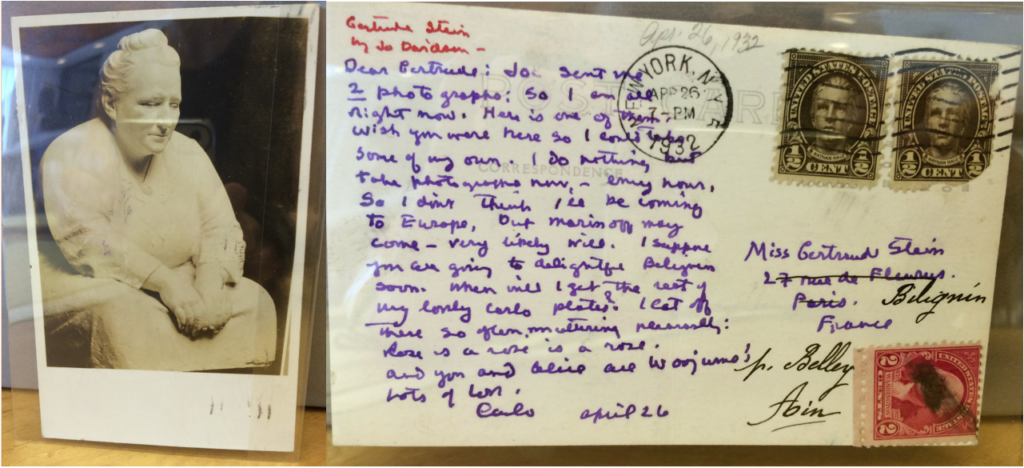 Gertrude Stein
by Jo Davidson -
Apr. 26, 1932
Dear Gertrude: Joe sent me
2 photographs: So I am all
right now. Here is one of them.
Wish you were here so I could take
some of my own. I do nothing but
take photographs now, - every hour,
So I don't think I'll be coming
to Europe, but Marinoff may
come - very likely will. I suppose
you are going to delightful Bilignin
soon. When will I get the rest of
my lovely Carlo plates? I eat off
these so often, muttering
Rose is a rose is a rose.
and you and Alice are Woojums's
Lots of love,
Carlo april 26
POST CARD
CORRESPONDENCE
NEW YORK, N.Y.
APR 26
7-PM
1932
UNITED STATES POSTAGE
1/2 CENT 1/2
UNITED STATES POSTAGE
1/2 CENT 1/2
Miss Gertrude Stein
27 rue de Fleurus.
Paris. Bilignin
France
p. Belley
Ain
UNITED STATES POSTAGE
2 CENTS 2